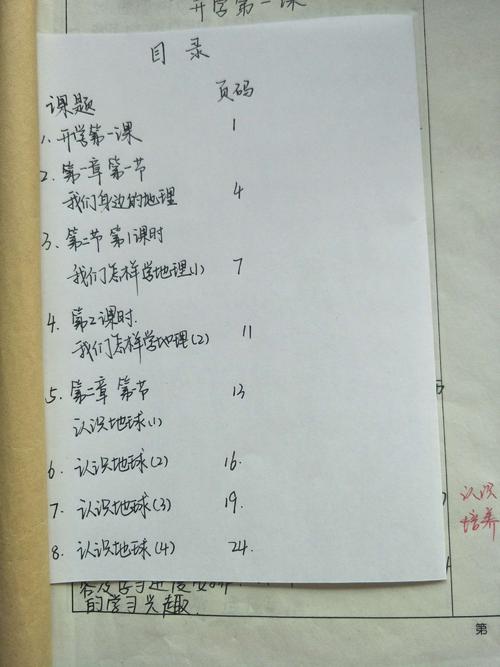 开学第一课
目 录
课题 页码
1、开学第一课 1
2、第一章 第一节
我们身边的地理 4
3、第二节 第1课时
我们怎样学地理(1) 7
4、第2课时
我们怎样学地理(2) 11
5、第二章 第一节 13
认识地球(1)
6、认识地球(2) 16.
7、认识地球(3) 19.
8、认识地球(4) 24.
认识
培养
的学习兴趣
第